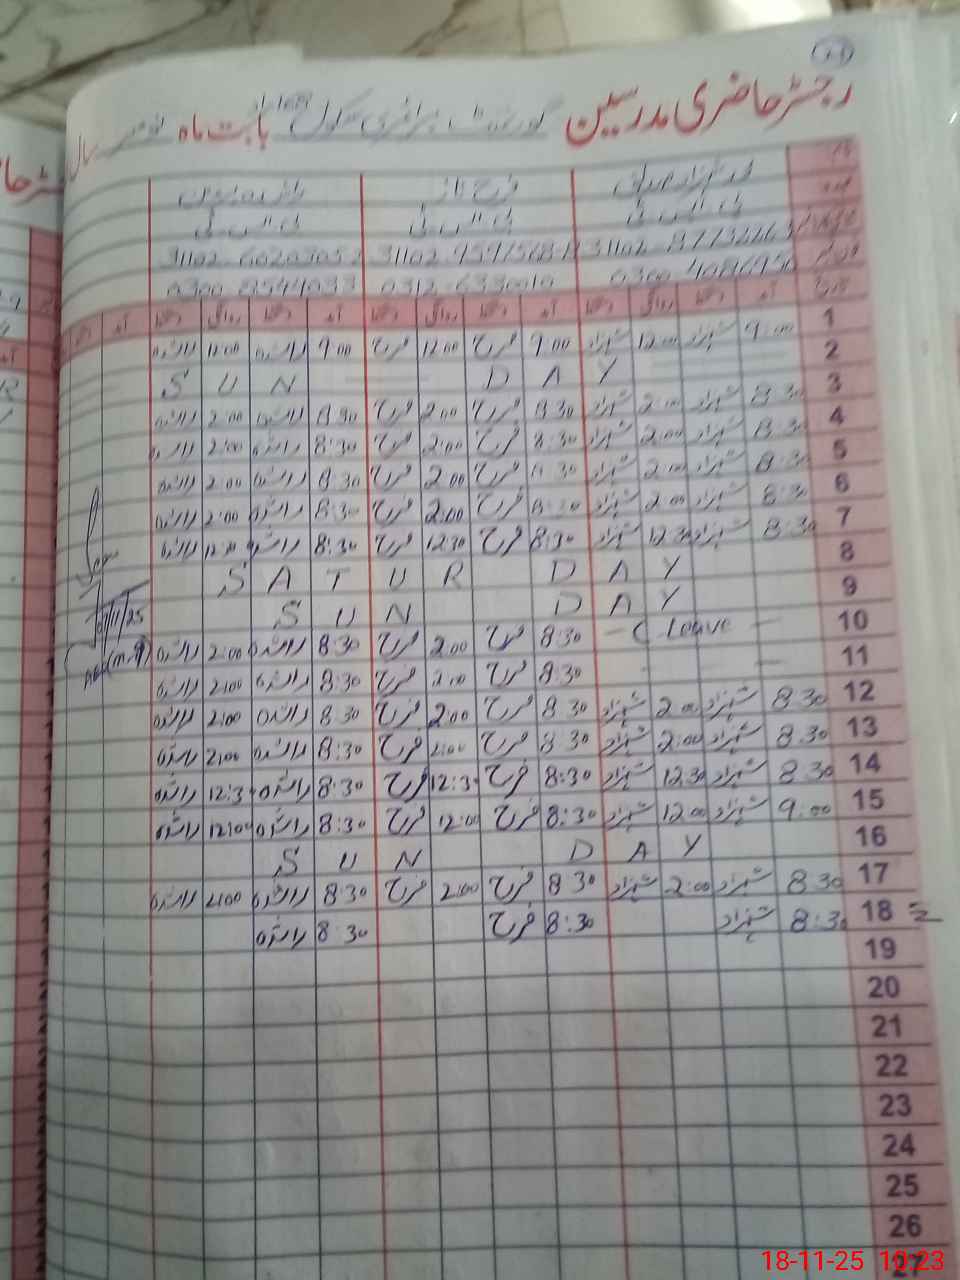 رجسٹر حاضری مدرسین گورنمنٹ پرائمری سکول بابت ماہ نومبر سال
فرح ناز
پی ایس ٹی پی ایس ٹی پی ایس ٹی
31102
0300 0312 0300
تاریخ آمد دستخط روانگی دستخط آمد دستخط روانگی دستخط آمد دستخط روانگی دستخط آمد
1 9:00 شہزاد 12:00 شہزاد 9:00 فرح 12:00 فرح 9:00 راشدہ 12:00 راشدہ
2 SUN DAY
3 8:30 شہزاد 2:00 شہزاد 8:30 فرح 2:00 فرح 8:30 راشدہ 2:00 راشدہ
4 8:30 شہزاد 2:00 شہزاد 8:30 فرح 2:00 فرح 8:30 راشدہ 2:00 راشدہ
5 8:30 شہزاد 2:00 شہزاد 8:30 فرح 2:00 فرح 8:30 راشدہ 2:00 راشدہ
6 8:30 شہزاد 2:00 شہزاد 8:30 فرح 2:00 فرح 8:30 راشدہ 2:00 راشدہ
7 8:30 شہزاد 12:30 شہزاد 8:30 فرح 12:30 فرح 8:30 راشدہ 12:30 راشدہ
8 SATUR DAY
9 SUN DAY
10 C leave 8:30 فرح 2:00 فرح 8:30 راشدہ 2:00 راشدہ
11 8:30 فرح 2:00 فرح 8:30 راشدہ 2:00 راشدہ
12 8:30 شہزاد 2:00 شہزاد 8:30 فرح 2:00 فرح 8:30 راشدہ 2:00 راشدہ
13 8:30 شہزاد 2:00 شہزاد 8:30 فرح 2:00 فرح 8:30 راشدہ 2:00 راشدہ
14 8:30 شہزاد 12:30 شہزاد 8:30 فرح 12:30 فرح 8:30 راشدہ 12:30 راشدہ
15 9:00 شہزاد 12:00 شہزاد 8:30 فرح 12:00 فرح 8:30 راشدہ 12:00 راشدہ
16 SUN DAY
17 8:30 شہزاد 2:00 شہزاد 8:30 فرح 2:00 فرح 8:30 راشدہ 2:00 راشدہ
18 8:30 شہزاد 8:30 فرح 8:30 راشدہ
19
20
21
22
23
24
25
26
27
18-11-25 10:23